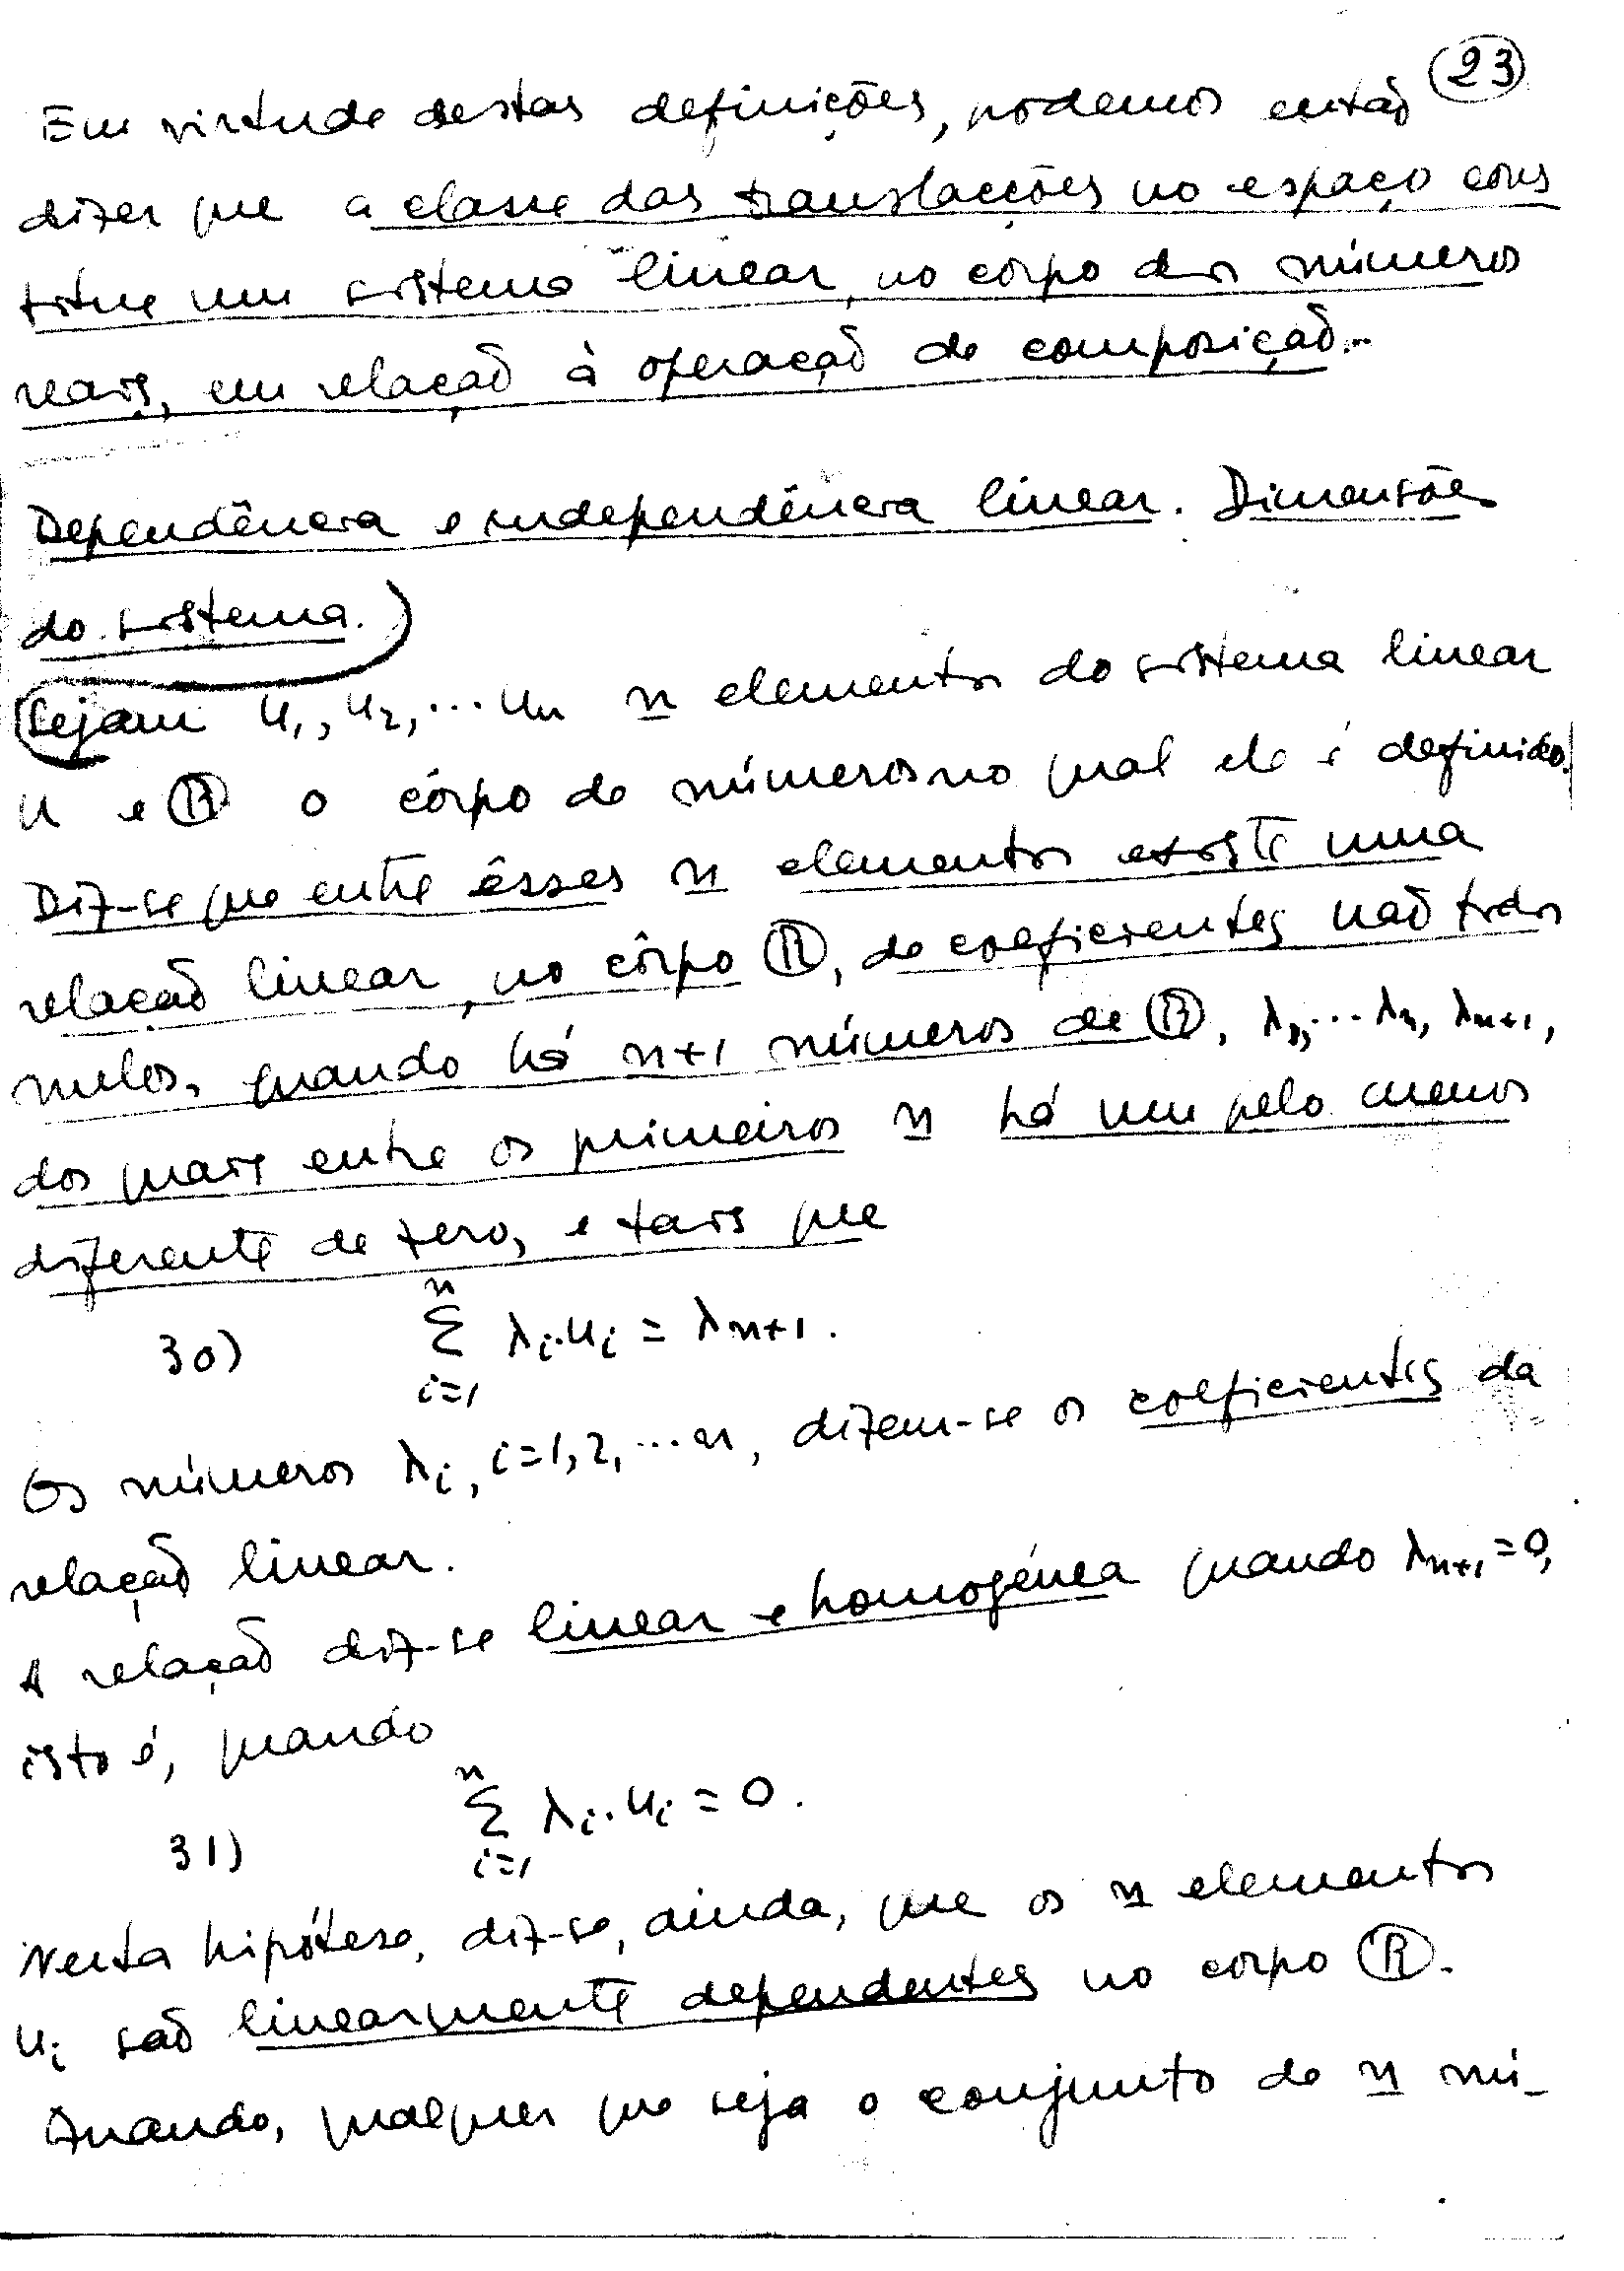 23
Em virtude destas definições, podemos então
dizer que a classe das translacções no espaço cons
titue um sistema linear, no corpo dos números
reais, em relação à operação de composição.
Dependência e independência linear. Dimensões
do sistema.
Sejam u₁, u₂, ... uₙ n elementos do sistema linear
U e R o côrpo de números no qual ele é definido.
Diz-se que entre êsses n elementos existe uma
relação linear, no côrpo R, de coeficientes não todos
nulos, quando há n+1 números de R, λ₁, ... λₙ, λₙ₊₁,
dos quais entre os primeiros n há um pelo menos
diferente de zero, e tais que
30) n Σ i=1 λᵢ.uᵢ = λₙ₊₁.
Os números λᵢ, i=1, 2, ... n, dizem-se os coeficientes da
relação linear.
A relação diz-se linear e homogénea quando λₙ₊₁ = 0,
isto é, quando
31) n Σ i=1 λᵢ.uᵢ = 0.
Nesta hipótese, diz-se, ainda, que os n elementos
uᵢ são linearmente dependentes no corpo R.
Quando, qualquer que seja o conjunto de n nú-